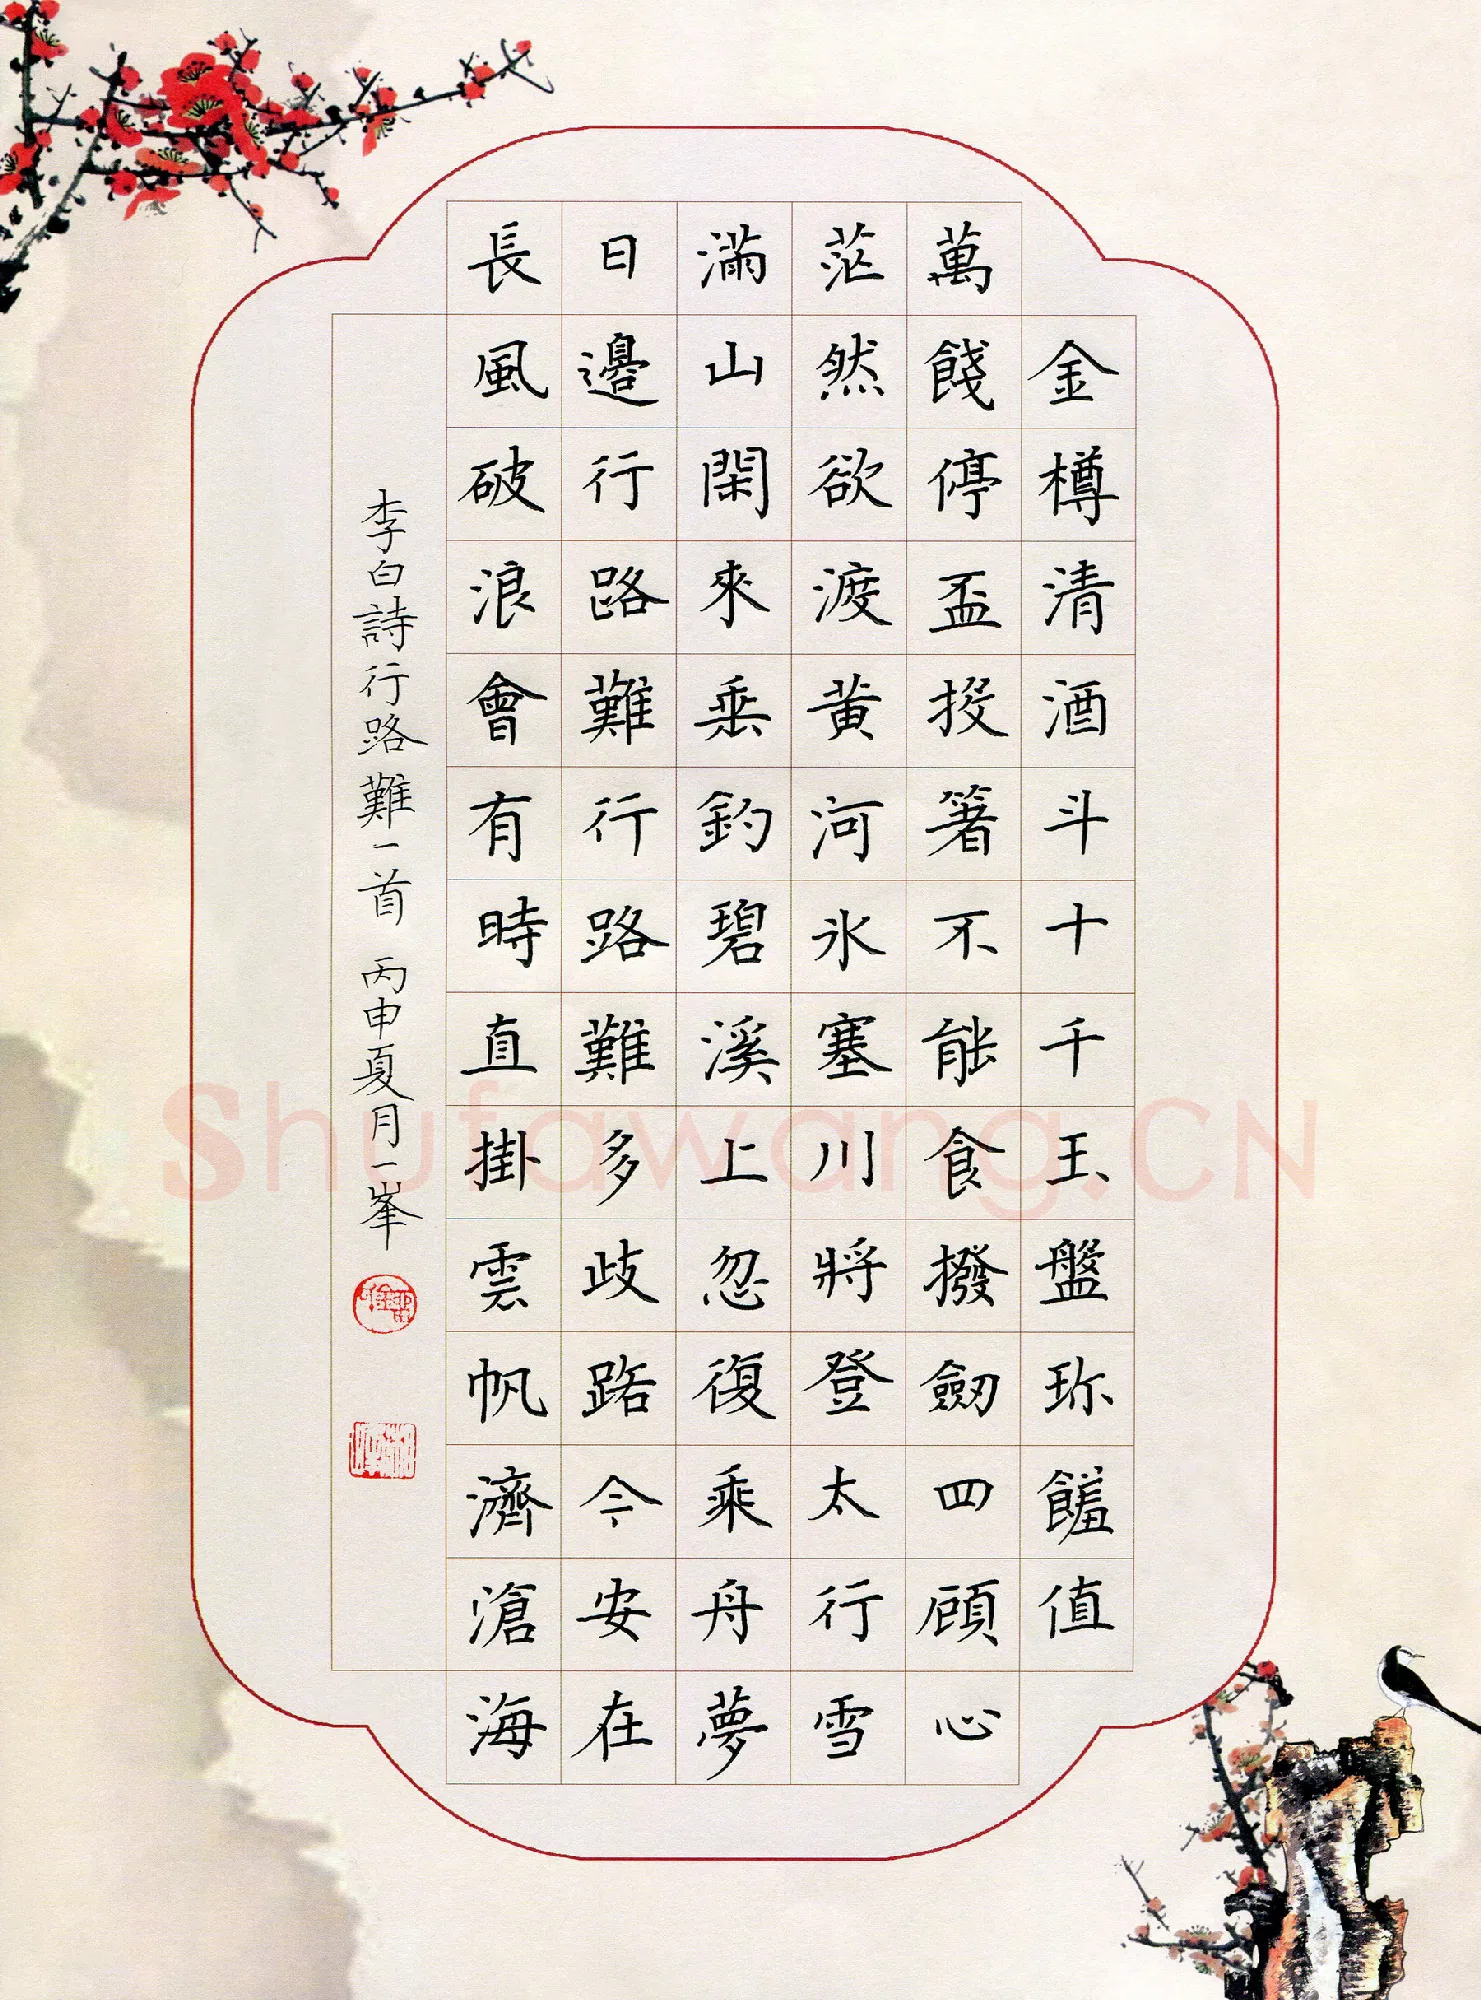 金樽清酒斗十千玉盤珎饈值
萬餞停盃投箸不能食撥劔四顧心
茫然欲渡黄河氷塞川將登太行雪
滿山閑來垂釣碧溪上忽復乘舟夢
日邊行路難行路難多歧路今安在
長風破浪會有時直掛雲帆濟滄海
李白詩行路難一首 丙申夏月一峯
Shufawang.CN